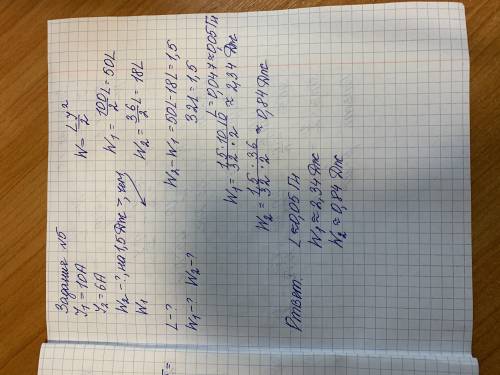 Задание №5
У₁ = 10А
У₂ = 6А
W₂ - ?, на 1,5 Дж >, чем
W₁
L - ?
W₁ - ? W₂ - ?
W = Lу²/2
W₁ = 100/2 L = 50L
W₂ = 36/2 L = 18L
W₂ - W₁ = 50L - 18L = 1,5
32L = 1,5
L = 0,047 ≈ 0,05 Гн
W₁ = 1,5 · 100/32 · 2 ≈ 2,34 Дж
W₂ = 1,5 · 36/32 · 2 ≈ 0,84 Дж
Ответ: L ≈ 0,05 Гн
W₁ ≈ 2,34 Дж
W₂ ≈ 0,84 Дж